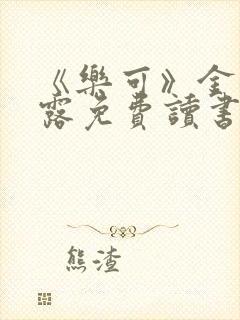 《樂可》金
露免費讀書
熊渣